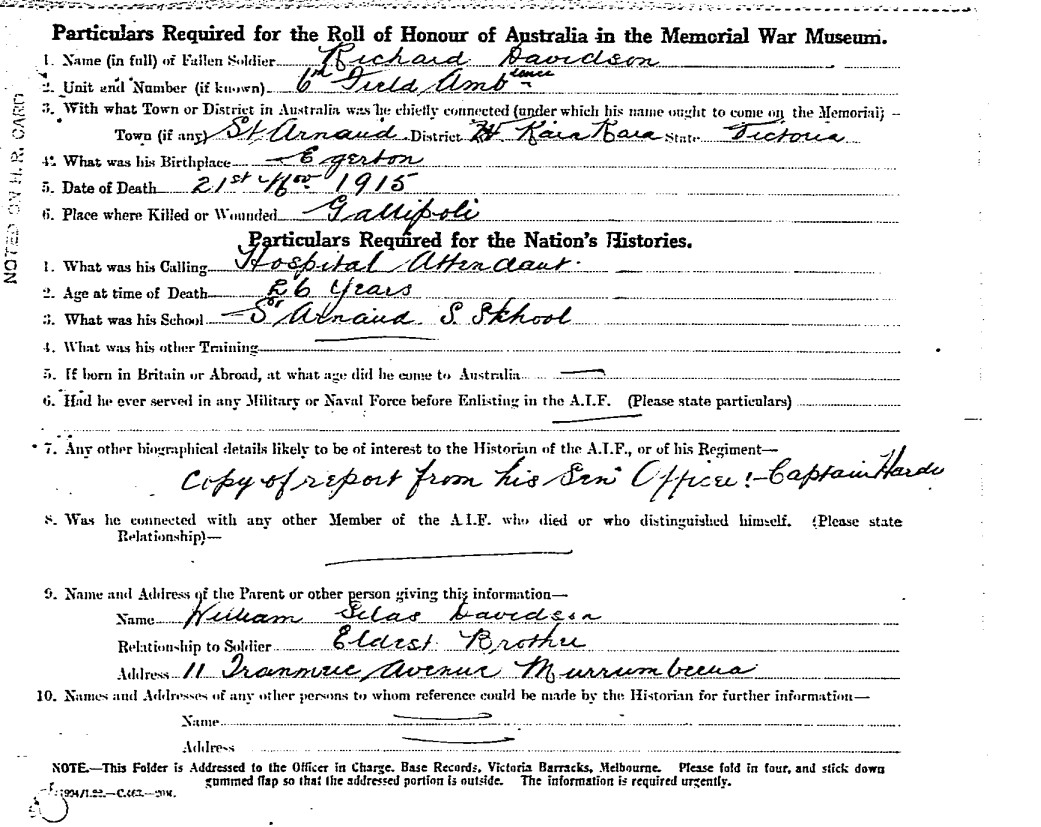 Particulars Required for the Roll of Honour of Australia in the Memorial War Museum.
1. Name (in full) of Fallen Soldier Richard Davidson
2. Unit and Number (if known). 6th Field Ambulance
3. With what Town or District in Australia was he chiefly connected (under which his name ought to come on the Memorial) –
Town (if any) St Arnaud District Kara Kara State Victoria
4. What was his Birthplace Egerton
5. Date of Death 21st Nov 1915
6. Place where Killed or Wounded Gallipoli
Particulars Required for the Nation's Histories.
1. What was his Calling Hospital Attendant.
2. Age at time of Death 26 years
3. What was his School St Arnaud S. School
4. What was his other Training
5. If born in Britain or Abroad, at what age did he come to Australia
6. Had he ever served in any Military or Naval Force before Enlisting in the A.I.F. (Please state particulars)
7. Any other biographical details likely to be of interest to the Historian of the A.I.F., or of his Regiment—
Copy of report from his Sen Officer:- Captain
8. Was he connected with any other Member of the A.I.F. who died or who distinguished himself. (Please state
Relationship)—
9. Name and Address of the Parent or other person giving this information—
Name William Silas Davidson
Relationship to Soldier Eldest Brother
Address 11 Tranmere Avenue Murrumbeena
10. Names and Addresses of any other persons to whom reference could be made by the Historian for further information—
Name
Address
NOTE.—This Folder is Addressed to the Officer in Charge, Base Records, Victoria Barracks, Melbourne. Please fold in four, and stick down
gummed flap so that the addressed portion is outside. The information is required urgently.
NOTED ON H.R. CARD